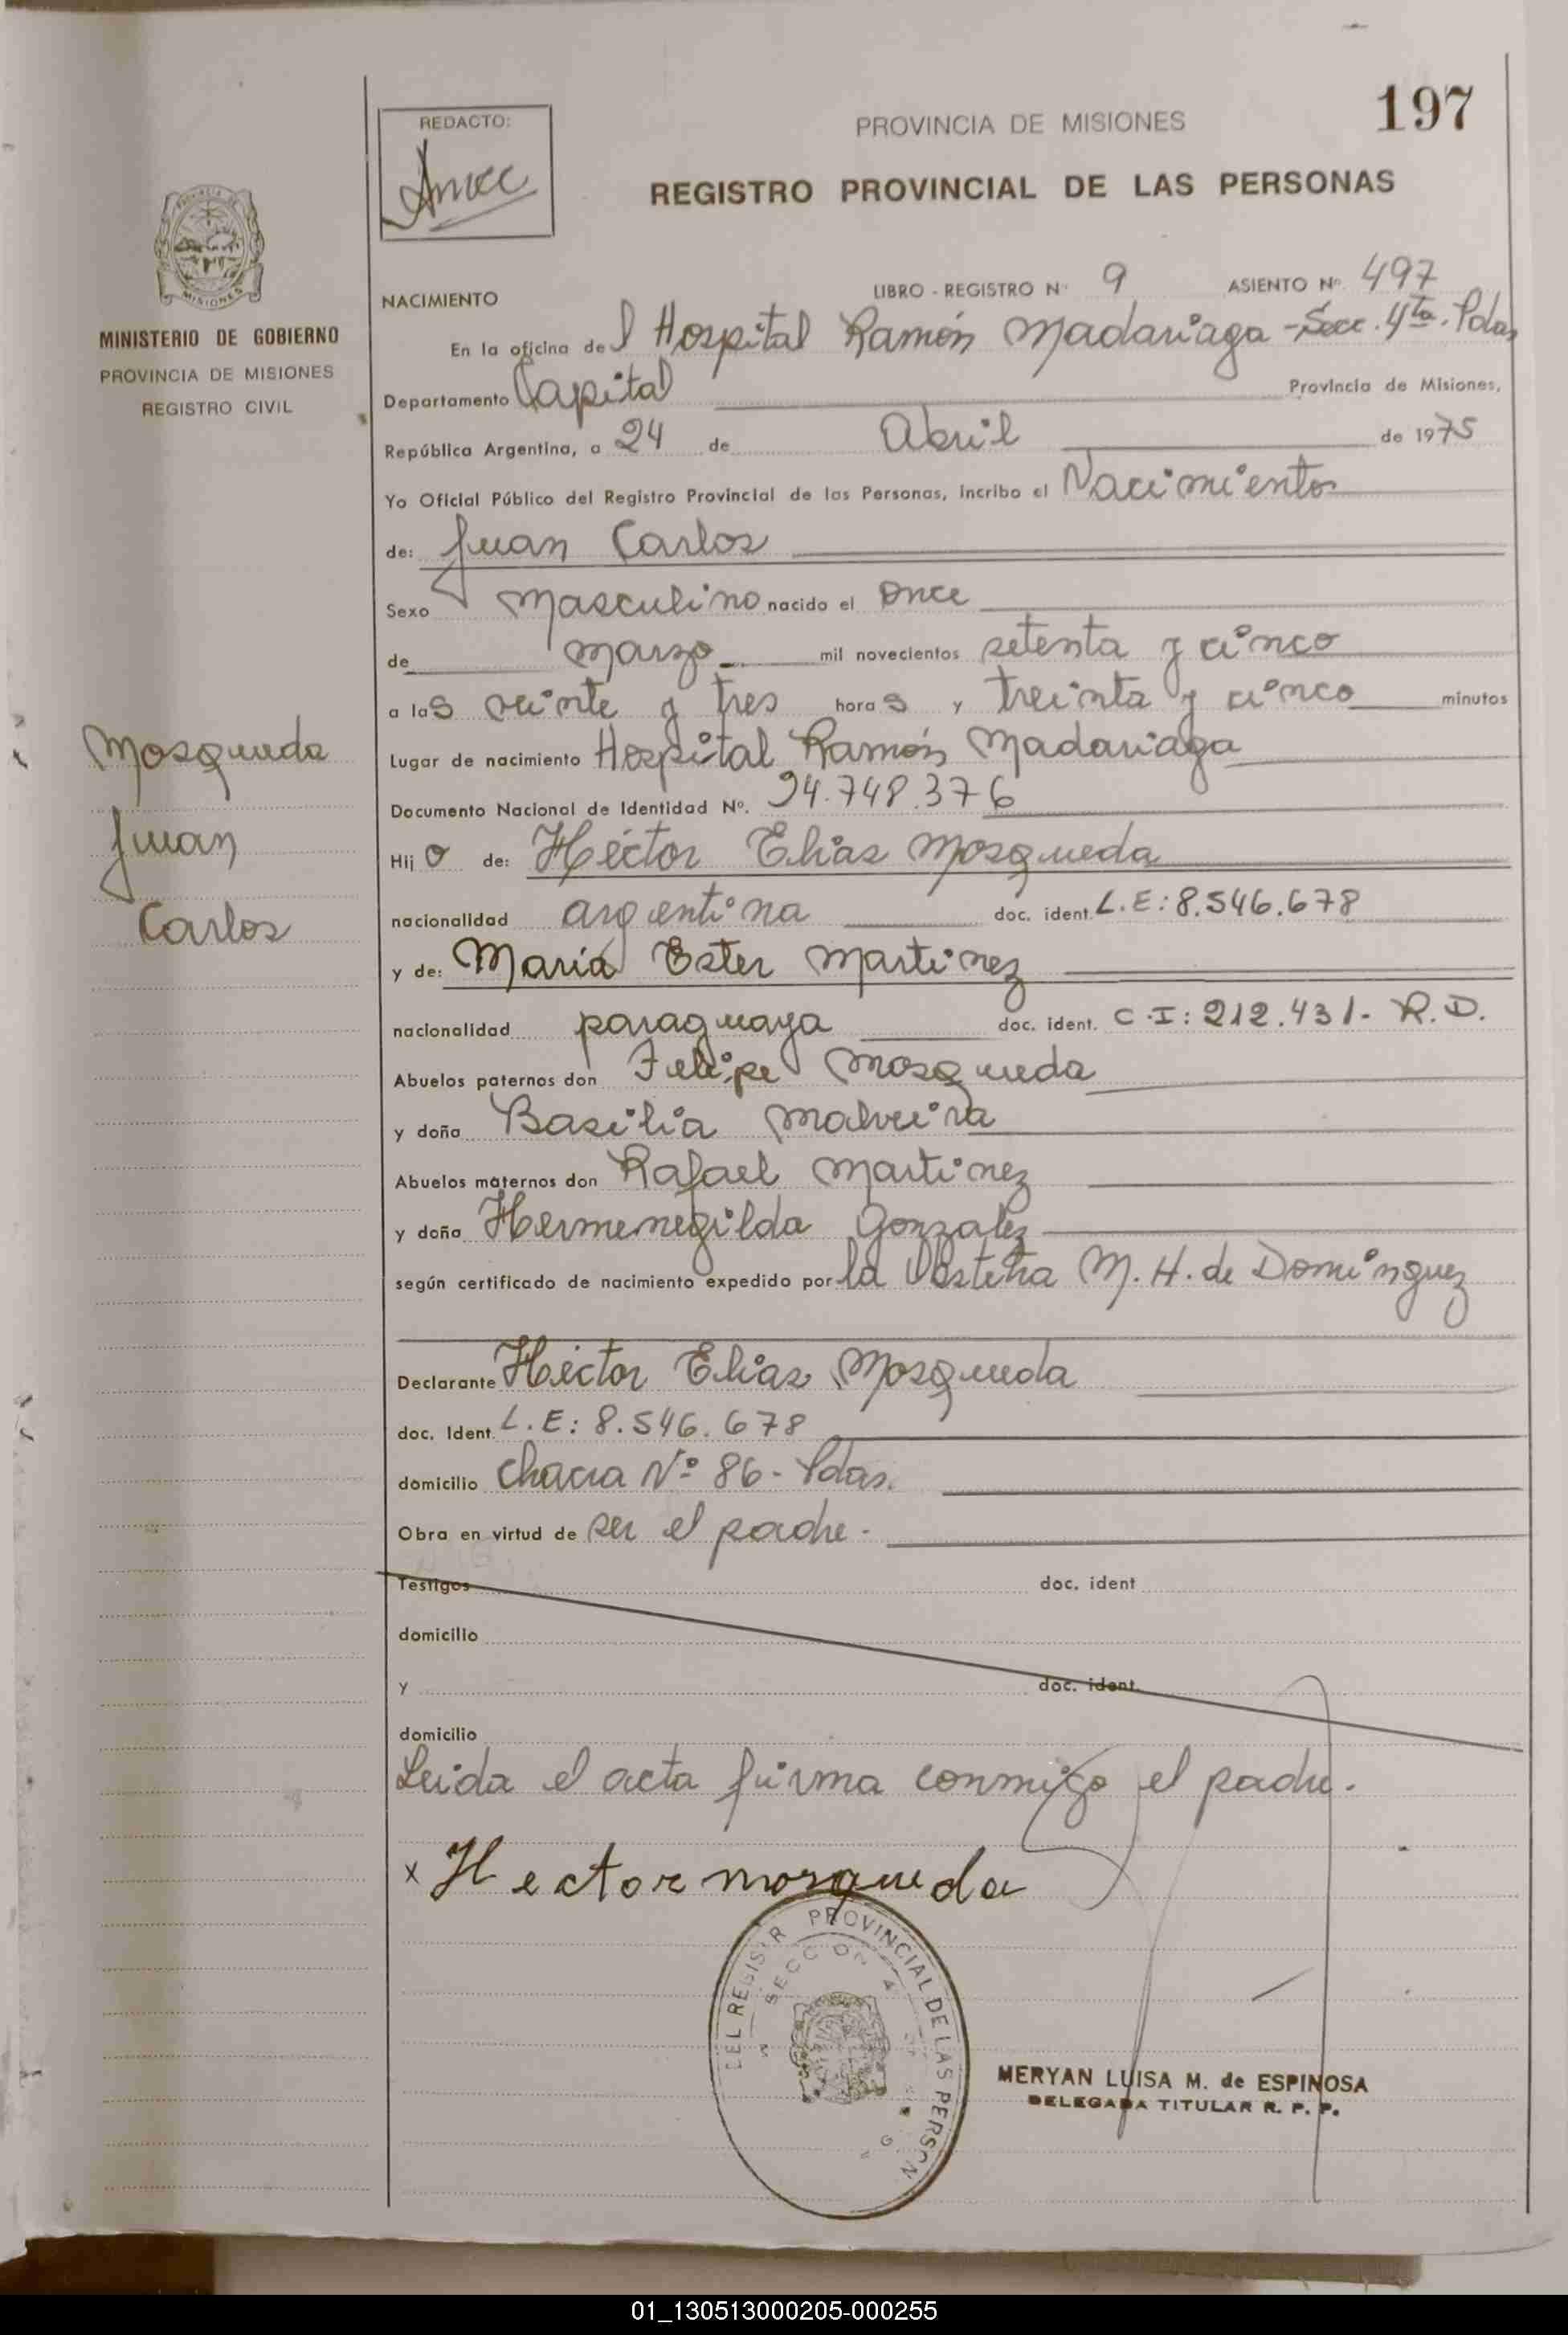 197
REDACTO:
PROVINCIA DE MISIONES
REGISTRO PROVINCIAL DE LAS PERSONAS
MISIONES
MINISTERIO DE GOBIERNO
PROVINCIA DE MISIONES
REGISTRO CIVIL
NACIMIENTO LIBRO - REGISTRO Nº 9 ASIENTO Nº 497
En la oficina del Hospital Ramón Madariaga - Secc. 4ta. Pdas
Departamento Capital Provincia de Misiones,
República Argentina, a 24 de Abril de 1975
Yo Oficial Público del Registro Provincial de las Personas, incribo el Nacimiento
de: Juan Carlos
Sexo Masculino nacido el once
de marzo mil novecientos setenta y cinco
a las veinte y tres horas y treinta y cinco minutos
Mosqueda
Juan
Carlos
Lugar de nacimiento Hospital Ramón Madariaga
Documento Nacional de Identidad Nº. 24.748.376
Hijo de: Héctor Elias Mosqueda
nacionalidad argentina doc. ident. L.E: 8.546.678
y de: María Ester Martinez
nacionalidad paraguaya doc. ident. C.I: 212.431- R.D.
Abuelos paternos don Felipe Mosqueda
y doña Basilia Malveira
Abuelos maternos don Rafael Martinez
y doña Hermenegilda Gonzalez
según certificado de nacimiento expedido por la Obstetra M. H. de Dominguez
Declarante Héctor Elias Mosqueda
doc. Ident. L.E: 8.546.678
domicilio chacra Nº 86 - Pdas.
Obra en virtud de ser el padre.-
Testigos doc. ident
domicilio
y doc. ident.
domicilio
Leida el acta firma conmigo el padre.
x Hector mosqueda
DEL REGISTR PROVINCIAL DE LAS PERSON
MERYAN LUISA M. de ESPINOSA
DELEGADA TITULAR R. P. P.
01_130513000205-000255